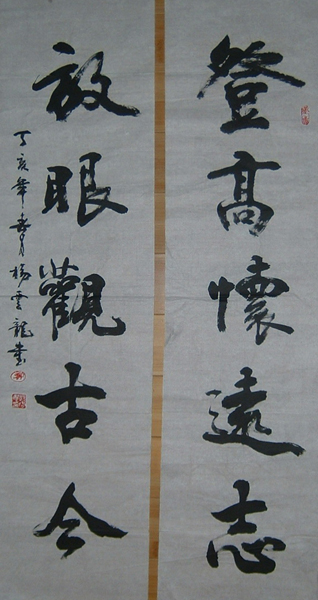 登高懷遠志
放眼觀古今
丁亥年春月楊雲龍書